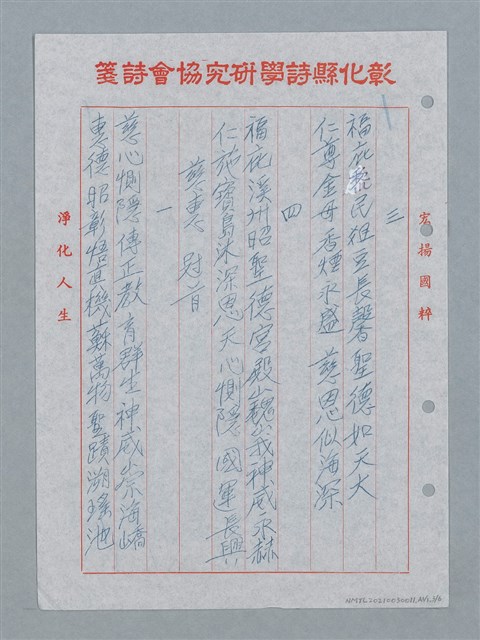 彰化縣詩學研究協會詩箋
宏揚國粹
三
福庇黎民俎豆長馨聖德如天大
仁尊金母香煙永盛慈恩似海深
四
福庇溪州昭聖德宮殿巍峩神威永赫
仁施寶島沐深恩天心惻隱國運長興
慈惠 冠首
一
慈心惻隱傳正教育群生神威崇海嶠
惠德昭彰悟真機蘇萬物聖蹟溯瑤池
淨化人生